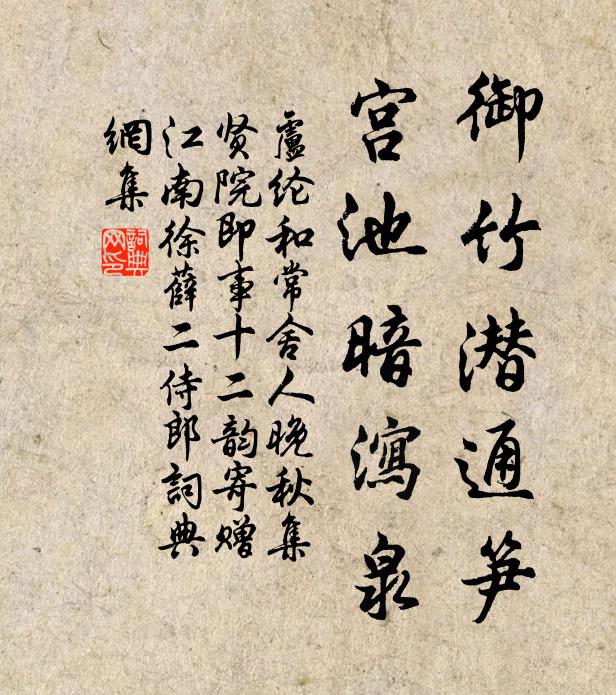 御竹潜通笋
宫池暗瀉泉
盧纶和常舍人晚秋集
贤院即事十二韵寄赠
江南徐薛二侍郎詞典
網集
詞典网印